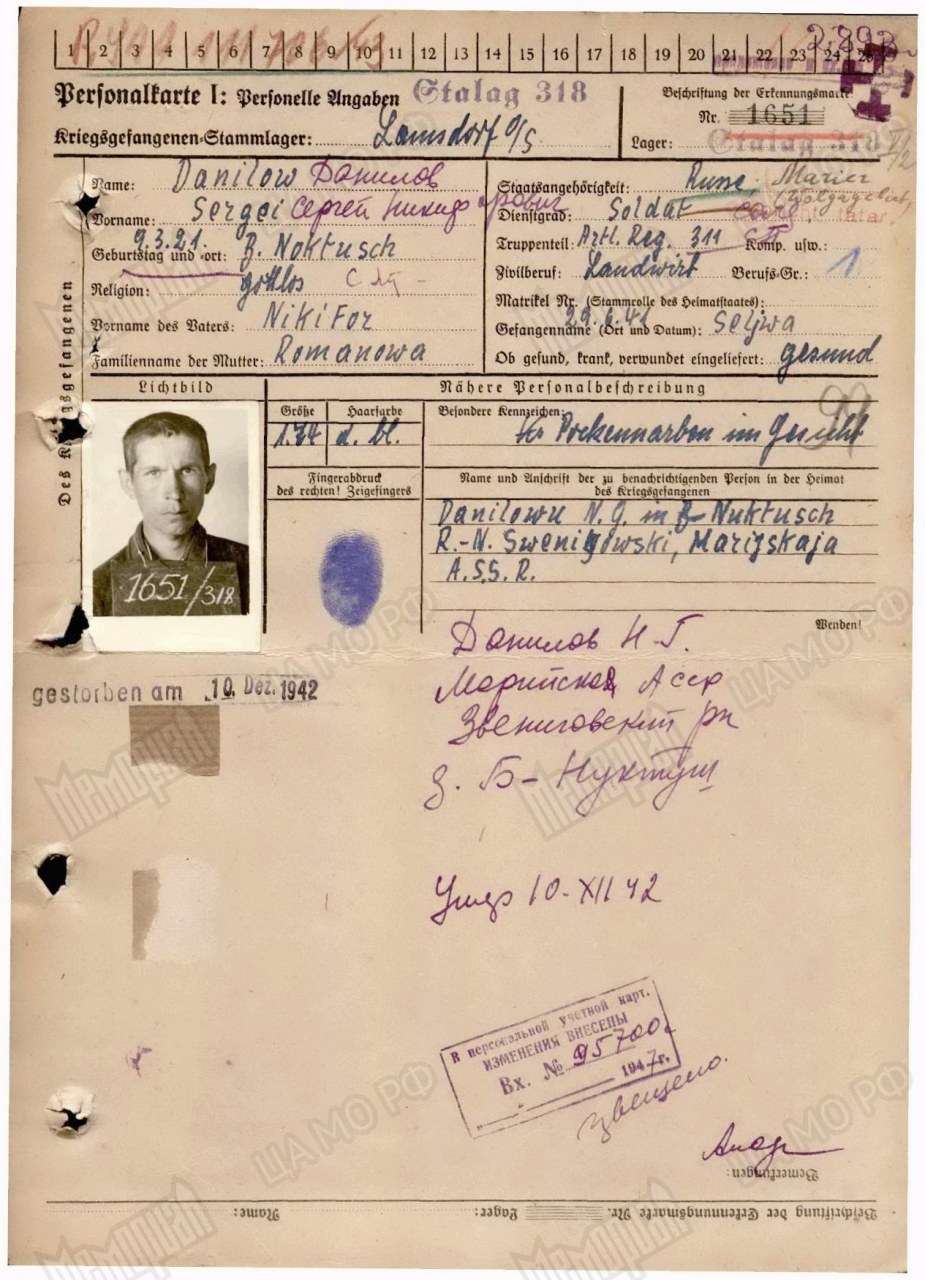 1 2 3 4 5 6 7 8 9 10 11 12 13 14 15 16 17 18 19 20 21 22 23 24 25
Personalkarte I: Personelle Angaben Stalag 318
Beschriftung der Erkennungsmarke
Nr. 1651
Kriegsgefangenen-Stammlager: Lamsdorf O/S
Lager: Stalag 318
Des Kriegsgefangenen
Name: Danilow Данилов
Vorname: Sergei Сергей Никифорович
Geburtstag und -ort: 9.3.21. B. Noktusch
Religion: gottlos
Vorname des Vaters: Nikifor
Familienname der Mutter: Romanowa
Staatsangehörigkeit: Russe, Marier
Dienstgrad: Soldat
Truppenteil: Artl. Reg. 311 Komp. usw.:
Zivilberuf: Landwirt Berufs-Gr.: 1
Matrikel Nr. (Stammrolle des Heimatstaates):
Gefangennahme (Ort und Datum): 29.6.41 Seljwa
Ob gesund, krank, verwundet eingeliefert: gesund
Lichtbild
Nähere Personalbeschreibung
Größe
1.74
Haarfarbe
d. bl.
Besondere Kennzeichen:
Pockennarben im Gesicht
Fingerabdruck
des rechten! Zeigefingers
Name und Anschrift der zu benachrichtigenden Person in der Heimat
des Kriegsgefangenen
Danilowu N. G. in B-Nuktusch
R.-N. Swenigowski, Marijskaja
A.S.S.R.
1651/318
Wenden!
Данилов Н-Г.
Марийская Асср
Звениговский рн
д. Б-Нуктуш
gestorben am 10. Dez. 1942
Умер 10-XII 42
В персональной учетной карт.
ИЗМЕНЕНИЯ ВНЕСЕНЫ
Вх. № 95700
1947г.
Bemerkungen:
Beschriftung der Erkennungsmarke Nr. Lager: Name:
МЕМОРИАЛ
ЦАМО РФ